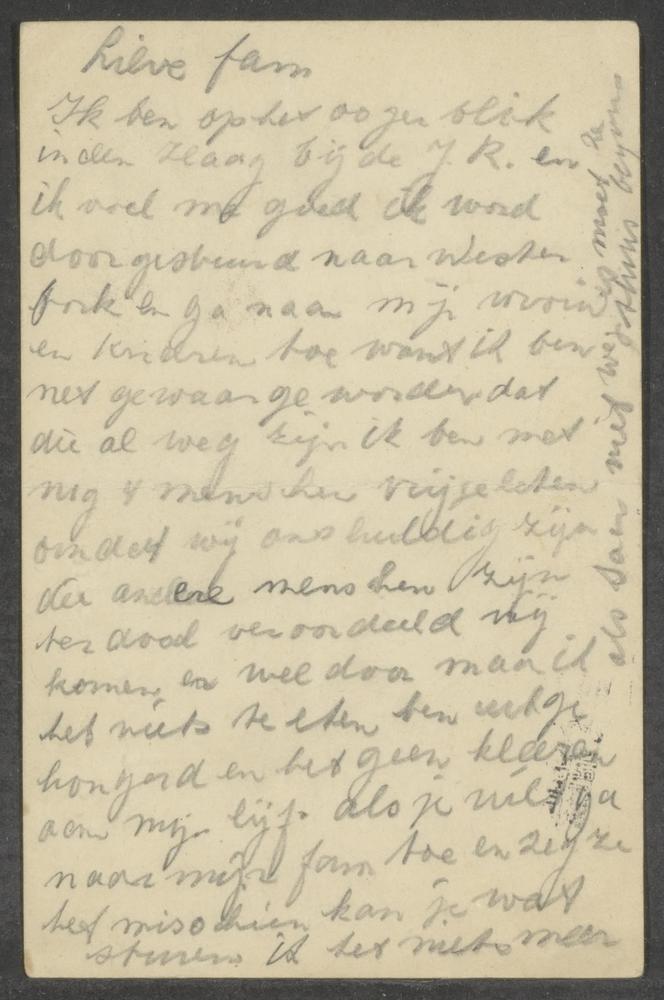 Lieve fam
Ik ben op het oogen blik
in den Haag bij de J. R. en
ik voel me goed ik word
door gestuurd naar Wester
bork en ga naar mijn vrouw
en kinderen toe want ik ben
net gewaar geworden dat
die al weg zijn ik ben met
nog 4 menschen vrijgelaten
omdat wij onschuldig zijn
die andere menschen zijn
ter dood veroordeeld wij
komen er wel door maar ik
heb niets te eten ben uitge
hongerd en heb geen kleeren
aan mijn lijf. als je wil ga
naar mijn fam toe en zeg ze
het misschien kan je wat
sturen ik heb niets meer
als Sam niet weg is moet ze
thuis blijven